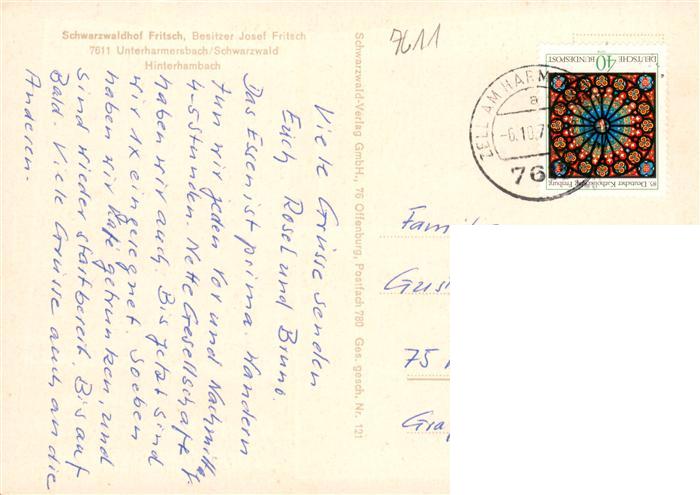 Schwarzwaldhof Fritsch, Besitzer Josef Fritsch
7611 Unterharmersbach/Schwarzwald
Hinterhambach
Viele Grüsse senden
Euch Rosel und Bruno.
Das Essen ist prima. Wandern
tun wir jeden Vor und Nachmitt.
4-5 Stunden. Nette Gesellschaft
haben wir auch. Bis jetzt sind
wir 1x eingeregnet. Soeben
haben wir Kafe getrunken, und
sind wieder startbereit. Bis auf
Bald. Viele Grüsse auch an die
Anderen.
Schwarzwald-Verlag GmbH., 76 Offenburg, Postfach 780 Ges. gesch. Nr. 121
7611
ZELL AM HARM
a
-6.10.7
76
DEUTSCHE BUNDESPOST
40
85. Deutscher Katholikentag Freiburg
Famili
Gus
75
Gra